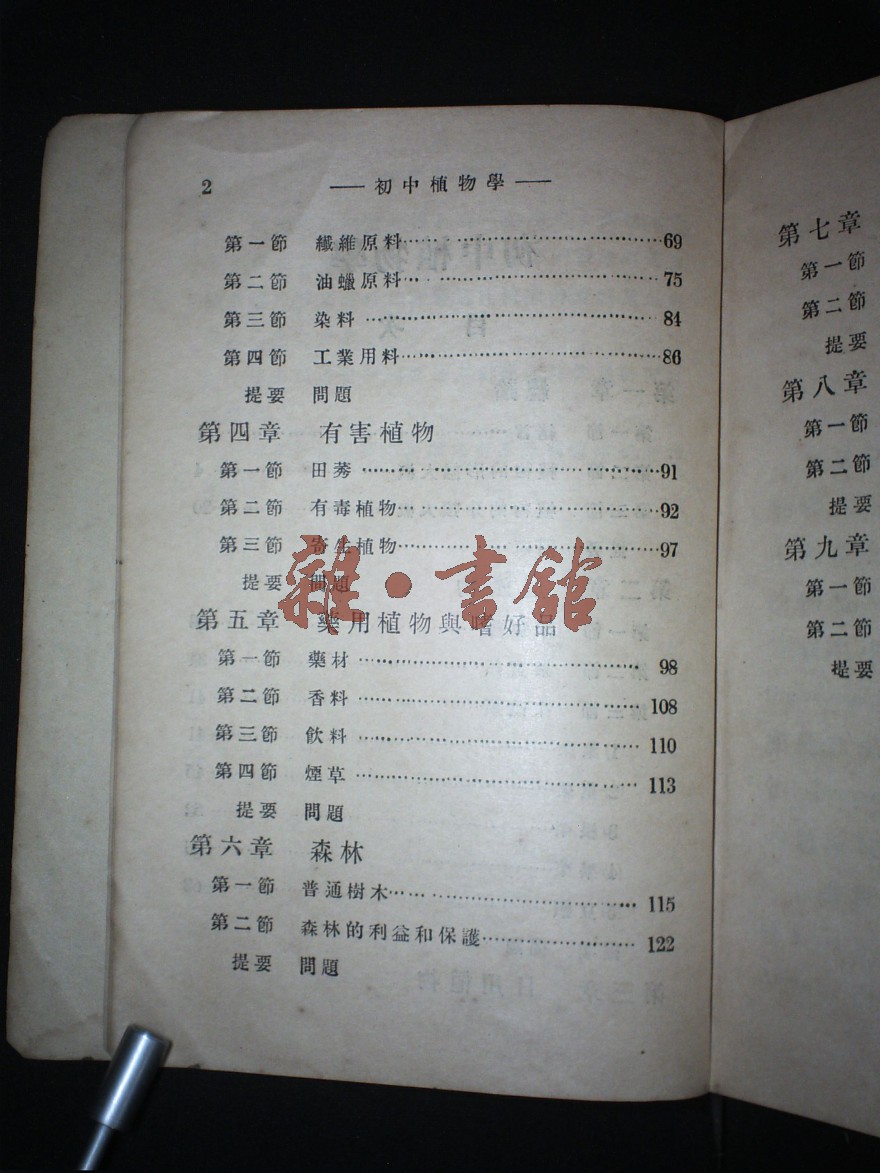 2 —— 初中植物學 ——
第一節 纖維原料 69
第二節 油蠟原料 75
第三節 染料 84
第四節 工業用料 86
提要 問題
第四章 有害植物
第一節 田莠 91
第二節 有毒植物 92
第三節 寄生植物 97
提要 問題
雜·書館
第五章 藥用植物與嗜好品
第一節 藥材 98
第二節 香料 108
第三節 飲料 110
第四節 煙草 113
提要 問題
第六章 森林
第一節 普通樹木 115
第二節 森林的利益和保護 122
提要 問題
第七章
第一節
第二節
提要
第八章
第一節
第二節
提要
第九章
第一節
第二節
提要